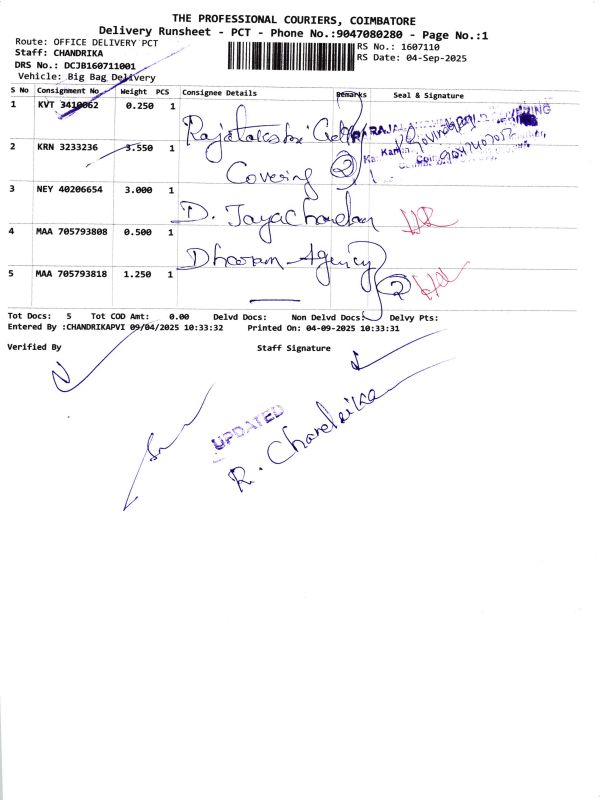 THE PROFESSIONAL COURIERS, COIMBATORE
Delivery Runsheet - PCT - Phone No.:9047080280 - Page No.:1
Route: OFFICE DELIVERY PCT
RS No.: 1607110
Staff: CHANDRIKA
RS Date: 04-Sep-2025
DRS No.: DCJB160711001
Vehicle: Big Bag Delivery
S No Consignment No. Weight PCS Consignee Details Remarks Seal & Signature
1 KVT 3410062 0.250 1
Rajalakshmi
2 KRN 3233236 3.550 1
Covering 2
3 NEY 40206654 3.000 1
D. Jayachandran
4 MAA 705793808 0.500 1
Dharam Agency
5 MAA 705793818 1.250 1
2
Tot Docs: 5 Tot COD Amt: 0.00 Delvd Docs: Non Delvd Docs: Delvy Pts:
Entered By :CHANDRIKAPVI 09/04/2025 10:33:32 Printed On: 04-09-2025 10:33:31
Verified By Staff Signature
UPDATED
R. Chandrika